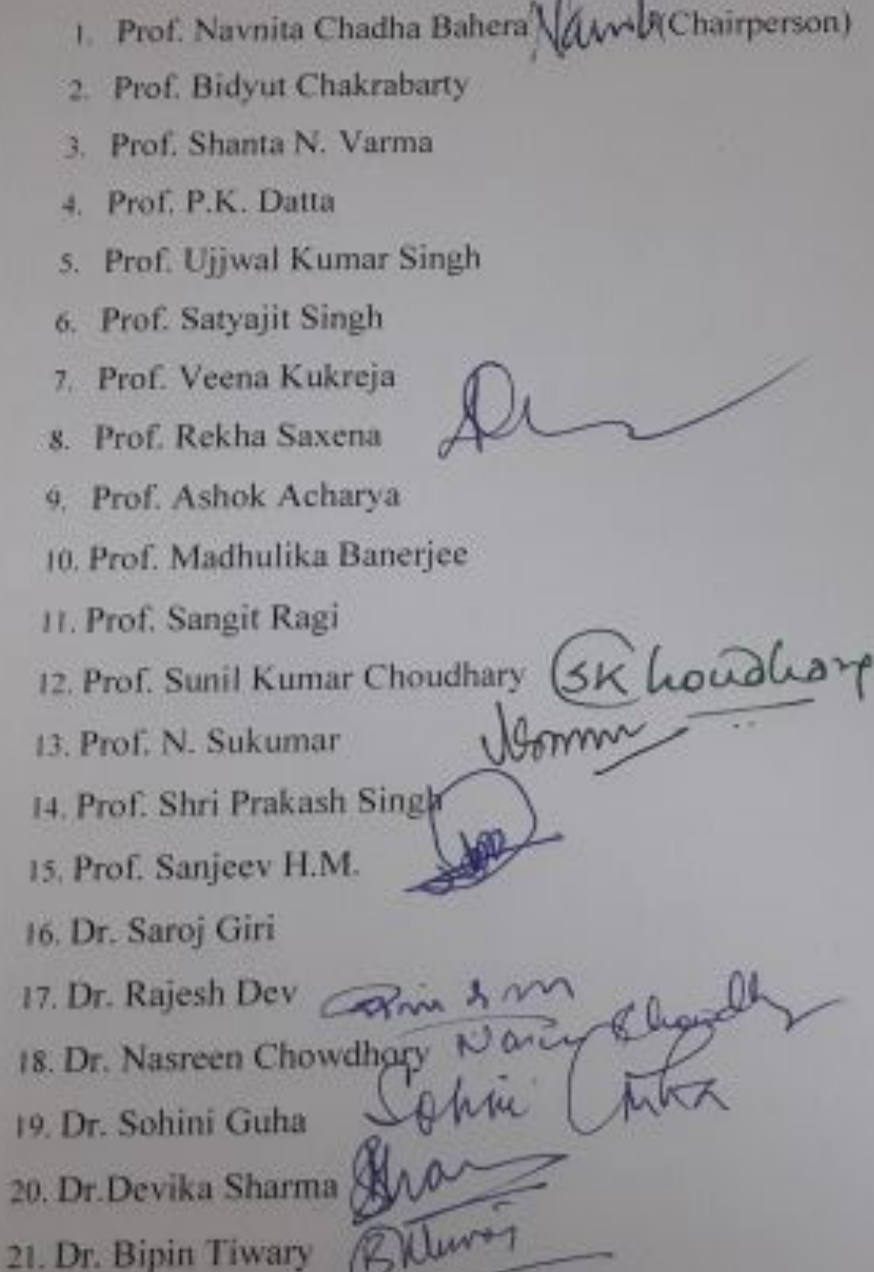 1. Prof. Navnita Chadha Bahera (Chairperson)
2. Prof. Bidyut Chakrabarty
3. Prof. Shanta N. Varma
4. Prof. P.K. Datta
5. Prof. Ujjwal Kumar Singh
6. Prof. Satyajit Singh
7. Prof. Veena Kukreja
8. Prof. Rekha Saxena
9. Prof. Ashok Acharya
10. Prof. Madhulika Banerjee
11. Prof. Sangit Ragi
12. Prof. Sunil Kumar Choudhary SKhoudhary
13. Prof. N. Sukumar
14. Prof. Shri Prakash Singh
15. Prof. Sanjeev H.M.
16. Dr. Saroj Giri
17. Dr. Rajesh Dev
18. Dr. Nasreen Chowdhory
19. Dr. Sohini Guha Sohini Guha
20. Dr.Devika Sharma
21. Dr. Bipin Tiwary